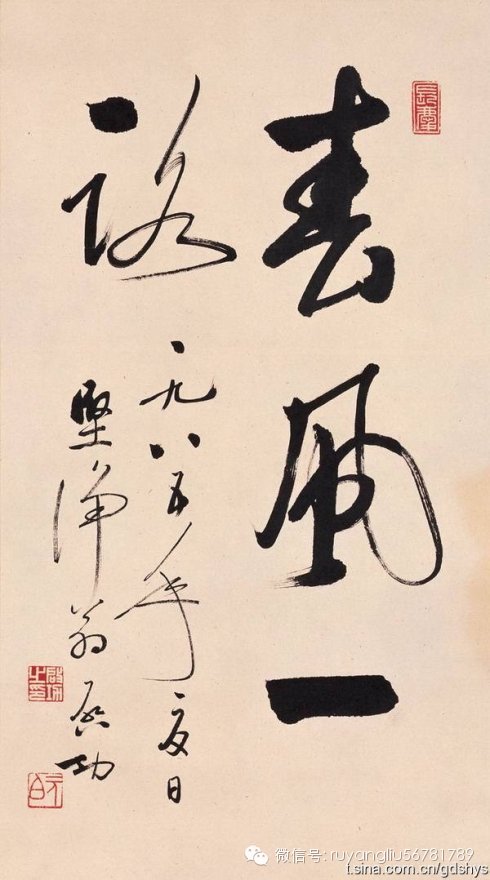 春風一
路
一九八五年夏日
堅淨翁启功
啟功之印
元白
微信号: ruyangliu56781789
t.sina.com.cn/gdshys